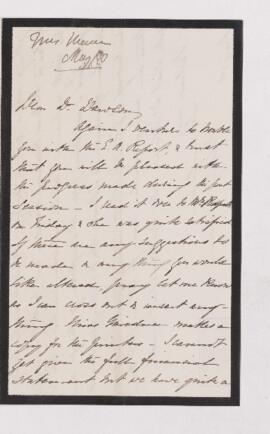 Mrs Mercer
May/80
Dear Dr Dawson
Again I venture to trouble
you with the E. A. Report, & trust
that you will be pleased with
the progress made during the past
Session — I read it over to Mr
on Friday & she was quite satisfied
if there are any suggestions to
be made or any thing you would
like altered pray let me know
as I can cross out & insert any-
thing Miss Gairdner makes a
copy for the Printers — I cannot
yet give the full financial
statement but we have quite a